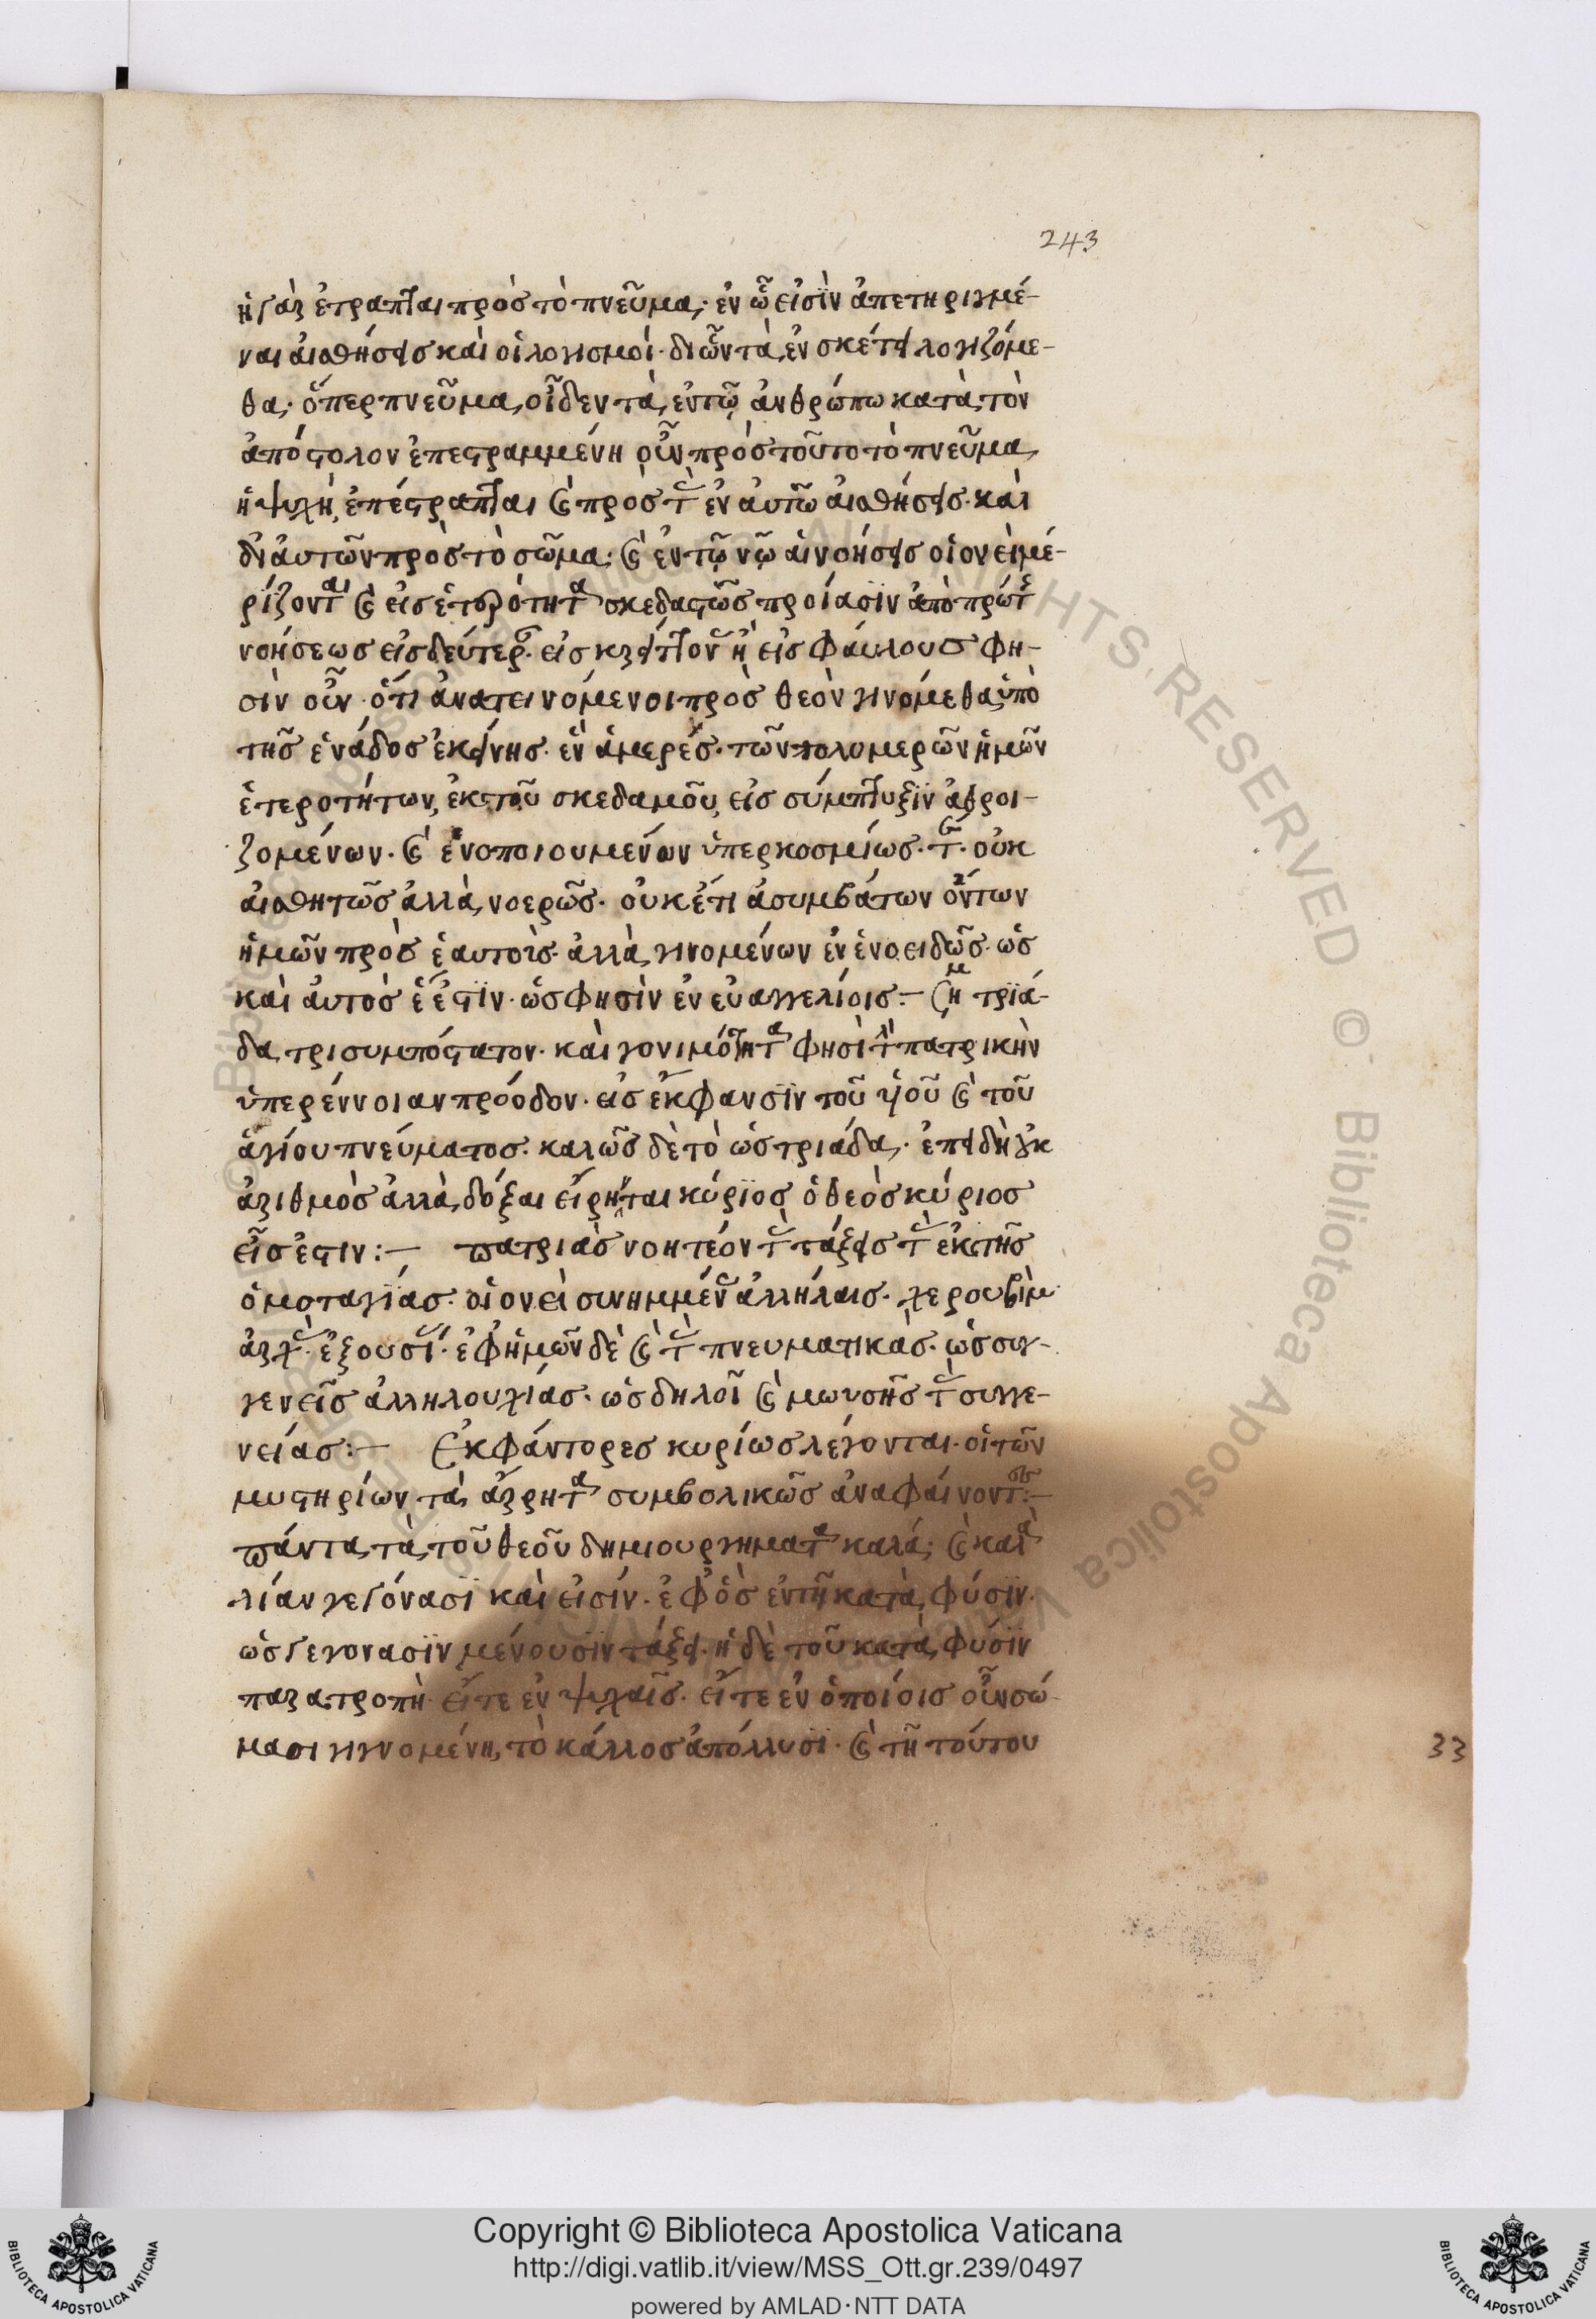 243
ἡ γὰρ ἐτραπται πρὸς τὸ πνεῦμα, ἐν ᾧ εἰσὶν ἀπετηριγμέ-
ναι αἰσθήσεις καὶ οἱ λογισμοί· δι ὧν τὰ ἐν σκέτει λογιζόμε-
θα· ὅπερ πνεῦμα, οἶδεν τὰ ἐν τῷ ἀνθρώπω κατὰ τὸν
ἀπόστολον ἐπεστραμμένη οὖν πρὸς τοῦτο τὸ πνεῦμα,
ἡ ψυχὴ, ἐπέστραπται καὶ πρὸς τὰς ἐν ἀυτῶ αἰσθήσεις· καὶ
δι ἀυτῶν πρὸς τὸ σῶμα· καὶ ἐν τῷ νῷ αἱ νοήσεις οἱονεὶ μέ-
ρίζονται καὶ εἰς ἑτερότητα σκεδαστῶς προίασϊν ἀπὸ πρώτης
νοήσεως εἰς δεύτερον· εἰς κρείττονας ἢ εἰς φάυλους φη-
σὶν οὖν· ὅτι ἀνατεινόμενοι πρὸς θεὸν γινόμεθα ὑπὸ
τῆς ἑνάδος ἐκείνης· ἓν ἀμερές· τῶν πολυμερῶν ἡμῶν
ἑτεροτήτων, ἐκ τοῦ σκεδαμοῦ, εἰς σύμπτυξϊν ἀθροι-
ζομένων· καὶ ἑνοποιουμένων ὑπερκοσμίως· τουτέστιν· οὐκ
αἰσθητῶς ἀλλὰ νοερῶς· οὐκ ἔτι ἀσυμβάτων ὄντων
ἡμῶν πρὸς ἑαυτοὶς· ἀλλὰ γινομένων ἐν ἑνοειδῶς· ὡς
καὶ ἀυτὸς ἕ ἐστϊν· ὥς φησὶν ἐν εὐαγγελίοις:- τρϊά-
δα, τρισυμπόστατον· καὶ γονιμότητα φησὶ τὴν πατρικὴν
ὑπερέννοιαν πρόοδον· εἰς ἔκφανσϊν τοῦ ὑἱοῦ καὶ τοῦ
ἁγίου πνεύματος· καλῶς δὲ τὸ ὡς τριάδα· ἐπειδὴ οὐκ
ἀριθμὸς ἀλλὰ, δόξαι εἴρηται κύρϊος ὁ θεὸς κύριος
εἷς ἐστιν:- πατριὰς νοητέον τὰς τάξεις τὰς ἐκ τῆς
ὁμοταγίας· οἱονεὶ συνημμένας ἀλλήλαις· χερουβὶμ
ἀρχὰς· ἐξουσίας· ἐφ ἡμῶν δὲ καὶ τὰς πνευματικὰς· ὡς συγ-
γενεῖς ἀλληλουχίας· ὡς δηλοῖ καὶ μωυσῆς τὰς συγγε-
νείας:- Ἐκφάντορες κυρίως λέγονται· οἱ τῶν
μυστηρίων τὰ ἄρρητα συμβολικῶς ἀναφαίνοντες:-
πάντα τὰ τοῦ θεοῦ δημιουργηματα καλά· καὶ καλὰ
λίαν γεγόνασϊ καὶ εἰσίν· ἐφ ὅς ἐν τῇ κατὰ φύσϊν·
ὡς γεγονασϊν μένουσϊν τάξει· ἡ δὲ τοῦ κατὰ φύσϊν
παρατροπὴ· εἴτε ἐν ψυχαῖς· εἴτε ἐν ὁποίοις οὖν σώ-
μασι γιγνομένη, τὸ κάλλος ἀπόλλυσϊ· καὶ τῆ τούτου
33
Copyright © Biblioteca Apostolica Vaticana
http://digi.vatlib.it/view/MSS_Ott.gr.239/0497
powered by AMLAD·NTT DATA